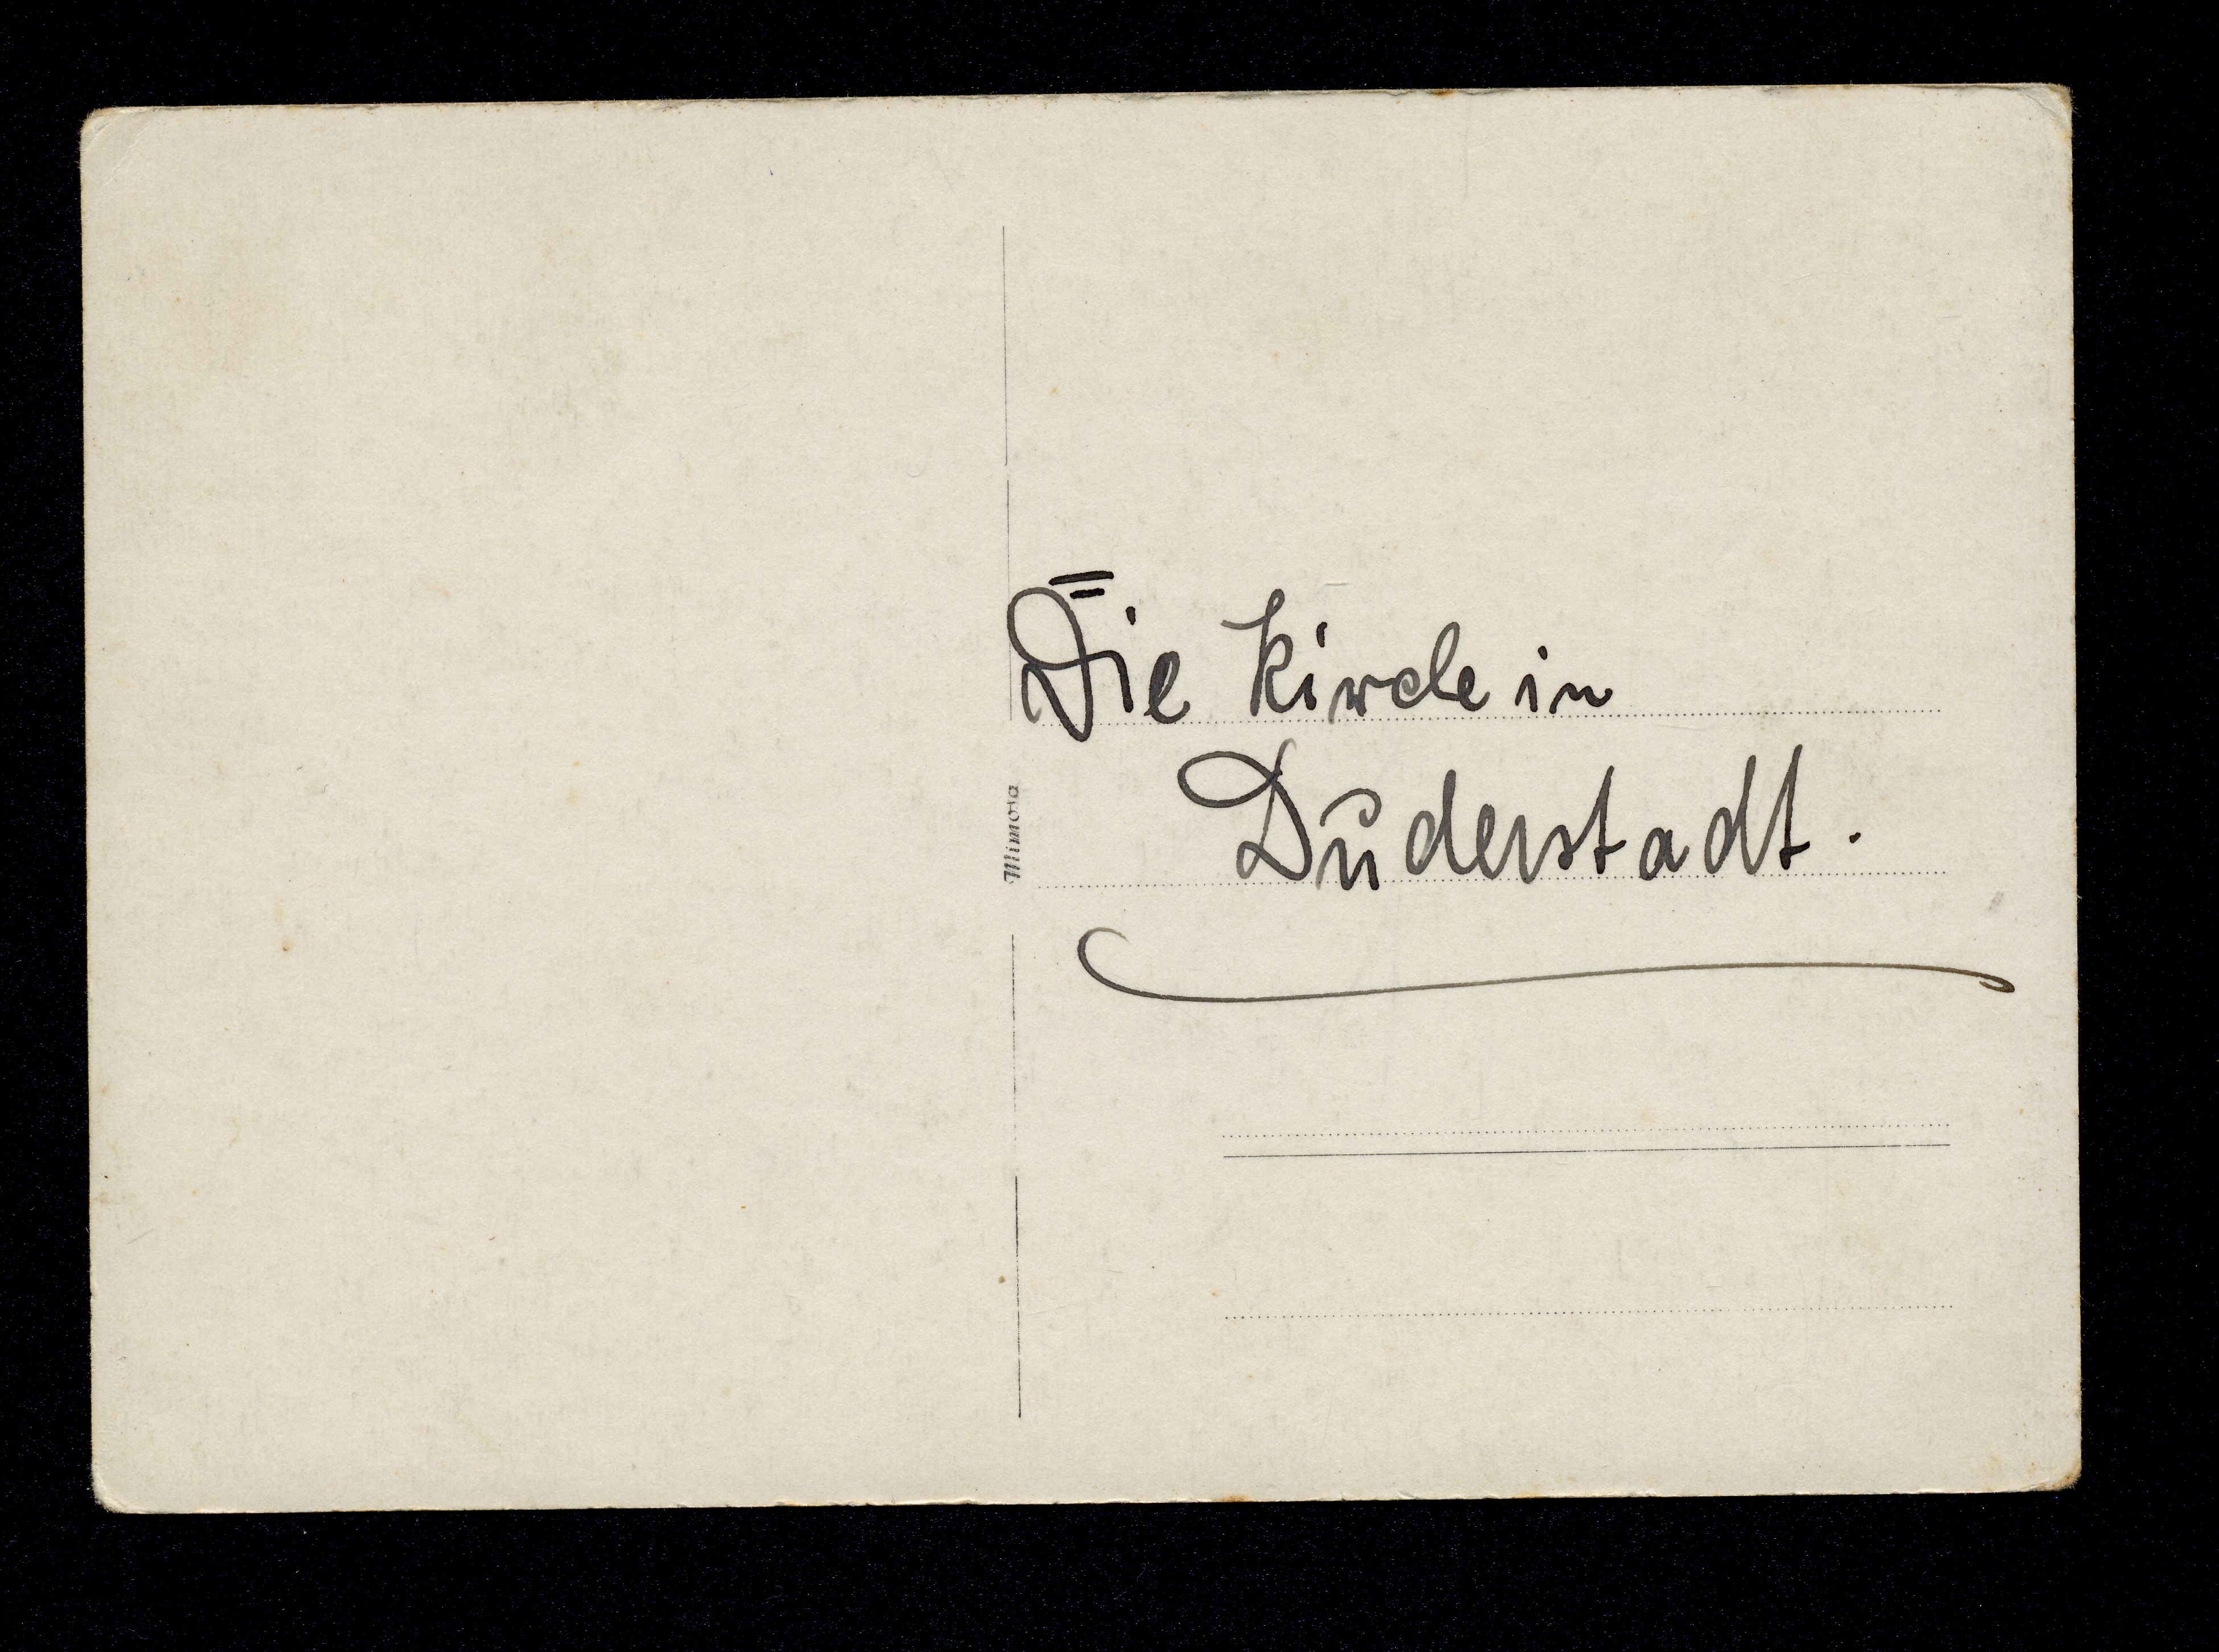 Die Kirche in
Duderstadt.
Mimosa